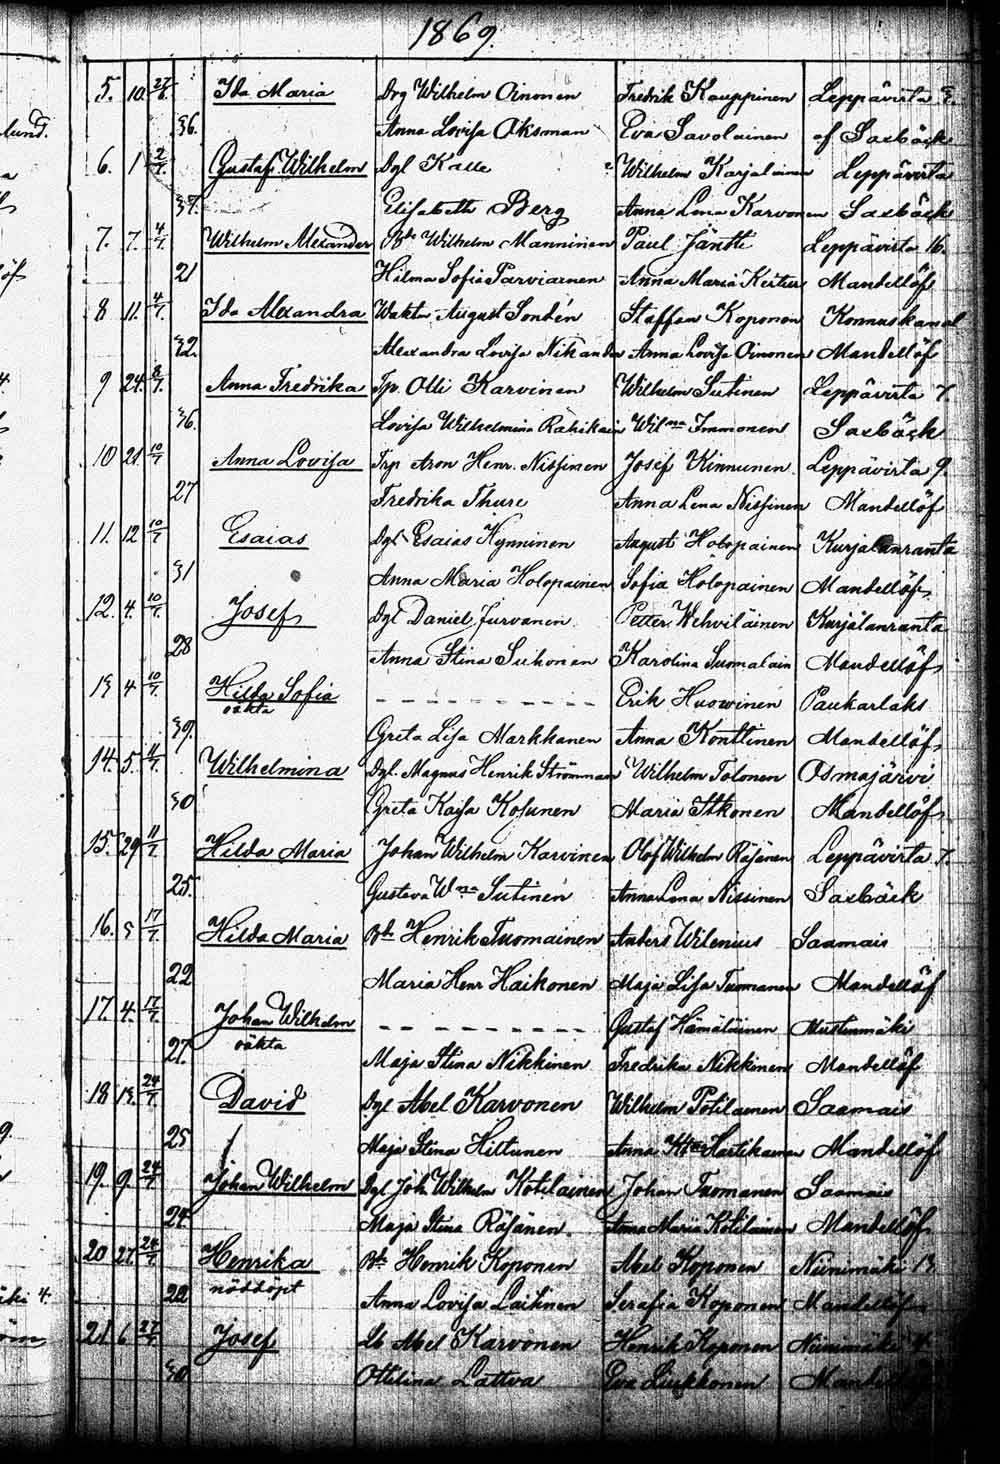 1869.
5. 10 27/6. Ida Maria Drg Wilhelm Oinonen Fredrik Kauppinen Leppävirta 3.
36. Anna Lovisa Oksman Eva Savolainen af Saxbäck
6. 1 2/7. Gustaf Wilhelm Dgl Kalle Wilhelm Karjalainen Leppävirta
37. Elisabeth Berg Anna Lena Karvonen Saxbäck
7. 7. 4/7. Wilhelm Alexander Wilhelm Manninen Paul Jäntti Leppävirta 16.
21 Hilma Sofia Parviainen Anna Maria Mandellöf
8 11. 4/7. Ida Alexandra August Sondén Staffan Koponen Konnuskanal
32. Alexandra Lovisa Nikander Anna Lovisa Oinonen Mandellöf
9 24. 8/7. Anna Fredrika Tp. Olli Karvinen Wilhelm Sutinen Leppävirta 7.
36. Lovisa Wilhelmina Räikikäin Wilma Immonen Saxbäck
10 21. 10/7 Anna Lovisa Trp Aron Henr. Nissinen Josef Kinnunen Leppävirta 9.
27 Fredrika Thure Anna Lena Nissinen Mandellöf
11. 12 10/7 Esaias Dgl Esaias Hynninen August Holopainen Kurjalanranta
31 Anna Maria Holopainen Sofia Holopainen Mandellöf
12. 4. 10/7. Josef Dgl Daniel Jurvanen Petter Wehviläinen Kurjalanranta
28 Anna Stina Suhonen Karolina Suomalain Mandellöf
13 4 10/7. Hilda Sofia - - - - - - - - - - Erik Huovinen Paukarlaks
oäkta
39. Greta Lisa Markkanen Anna Konttinen Mandellöf
14. 5. 11/7. Wilhelmina Dgl. Magnus Henrik Strömman Wilhelm Tolonen Osmajärvi
30 Greta Kaisa Kosunen Maria Itkonen Mandellöf
15. 29 11/7. Hilda Maria Johan Wilhelm Karvinen Olof Wilhelm Räsänen Leppävirta 7.
25. Gustava Wma Sutinen Anna Lena Nissinen Saxbäck
16. 3 17/7. Hilda Maria Henrik Tuomainen Anders Wilenius Saamais
22 Maria Henr Haikonen Maja Lisa Tuomanen Mandellöf
17. 4. 17/7. Johan Wilhelm - - - - - - - - - - Gustaf Hämäläinen Mustinmäki
oäkta
27. Maja Stina Nikkinen Fredrika Nikkinen Mandellöf
18 13. 24/7. David Dgl Abel Karvonen Wilhelm Potilainen Saamais
25 Maja Stina Hiltunen Anna Hartikainen Mandellöf
19. 9. 24/7 Johan Wilhelm Dgl Joh. Wilhelm Kotilainen Johan Tuomanen Saamais
24 Maja Stina Räsänen. Anna Maria Kotilainen Mandellöf
20 21. 24/7 Henrika Henrik Koponen Abel Koponen Niinimäki 13
nöddöpt
22 Anna Lovisa Laitinen Serafia Koponen Mandellöf
21 6 27/7 Josef Abel Karvonen Henrik Koponen Niinimäki 4.
30 Ottilina Lattva Eva Liukkonen